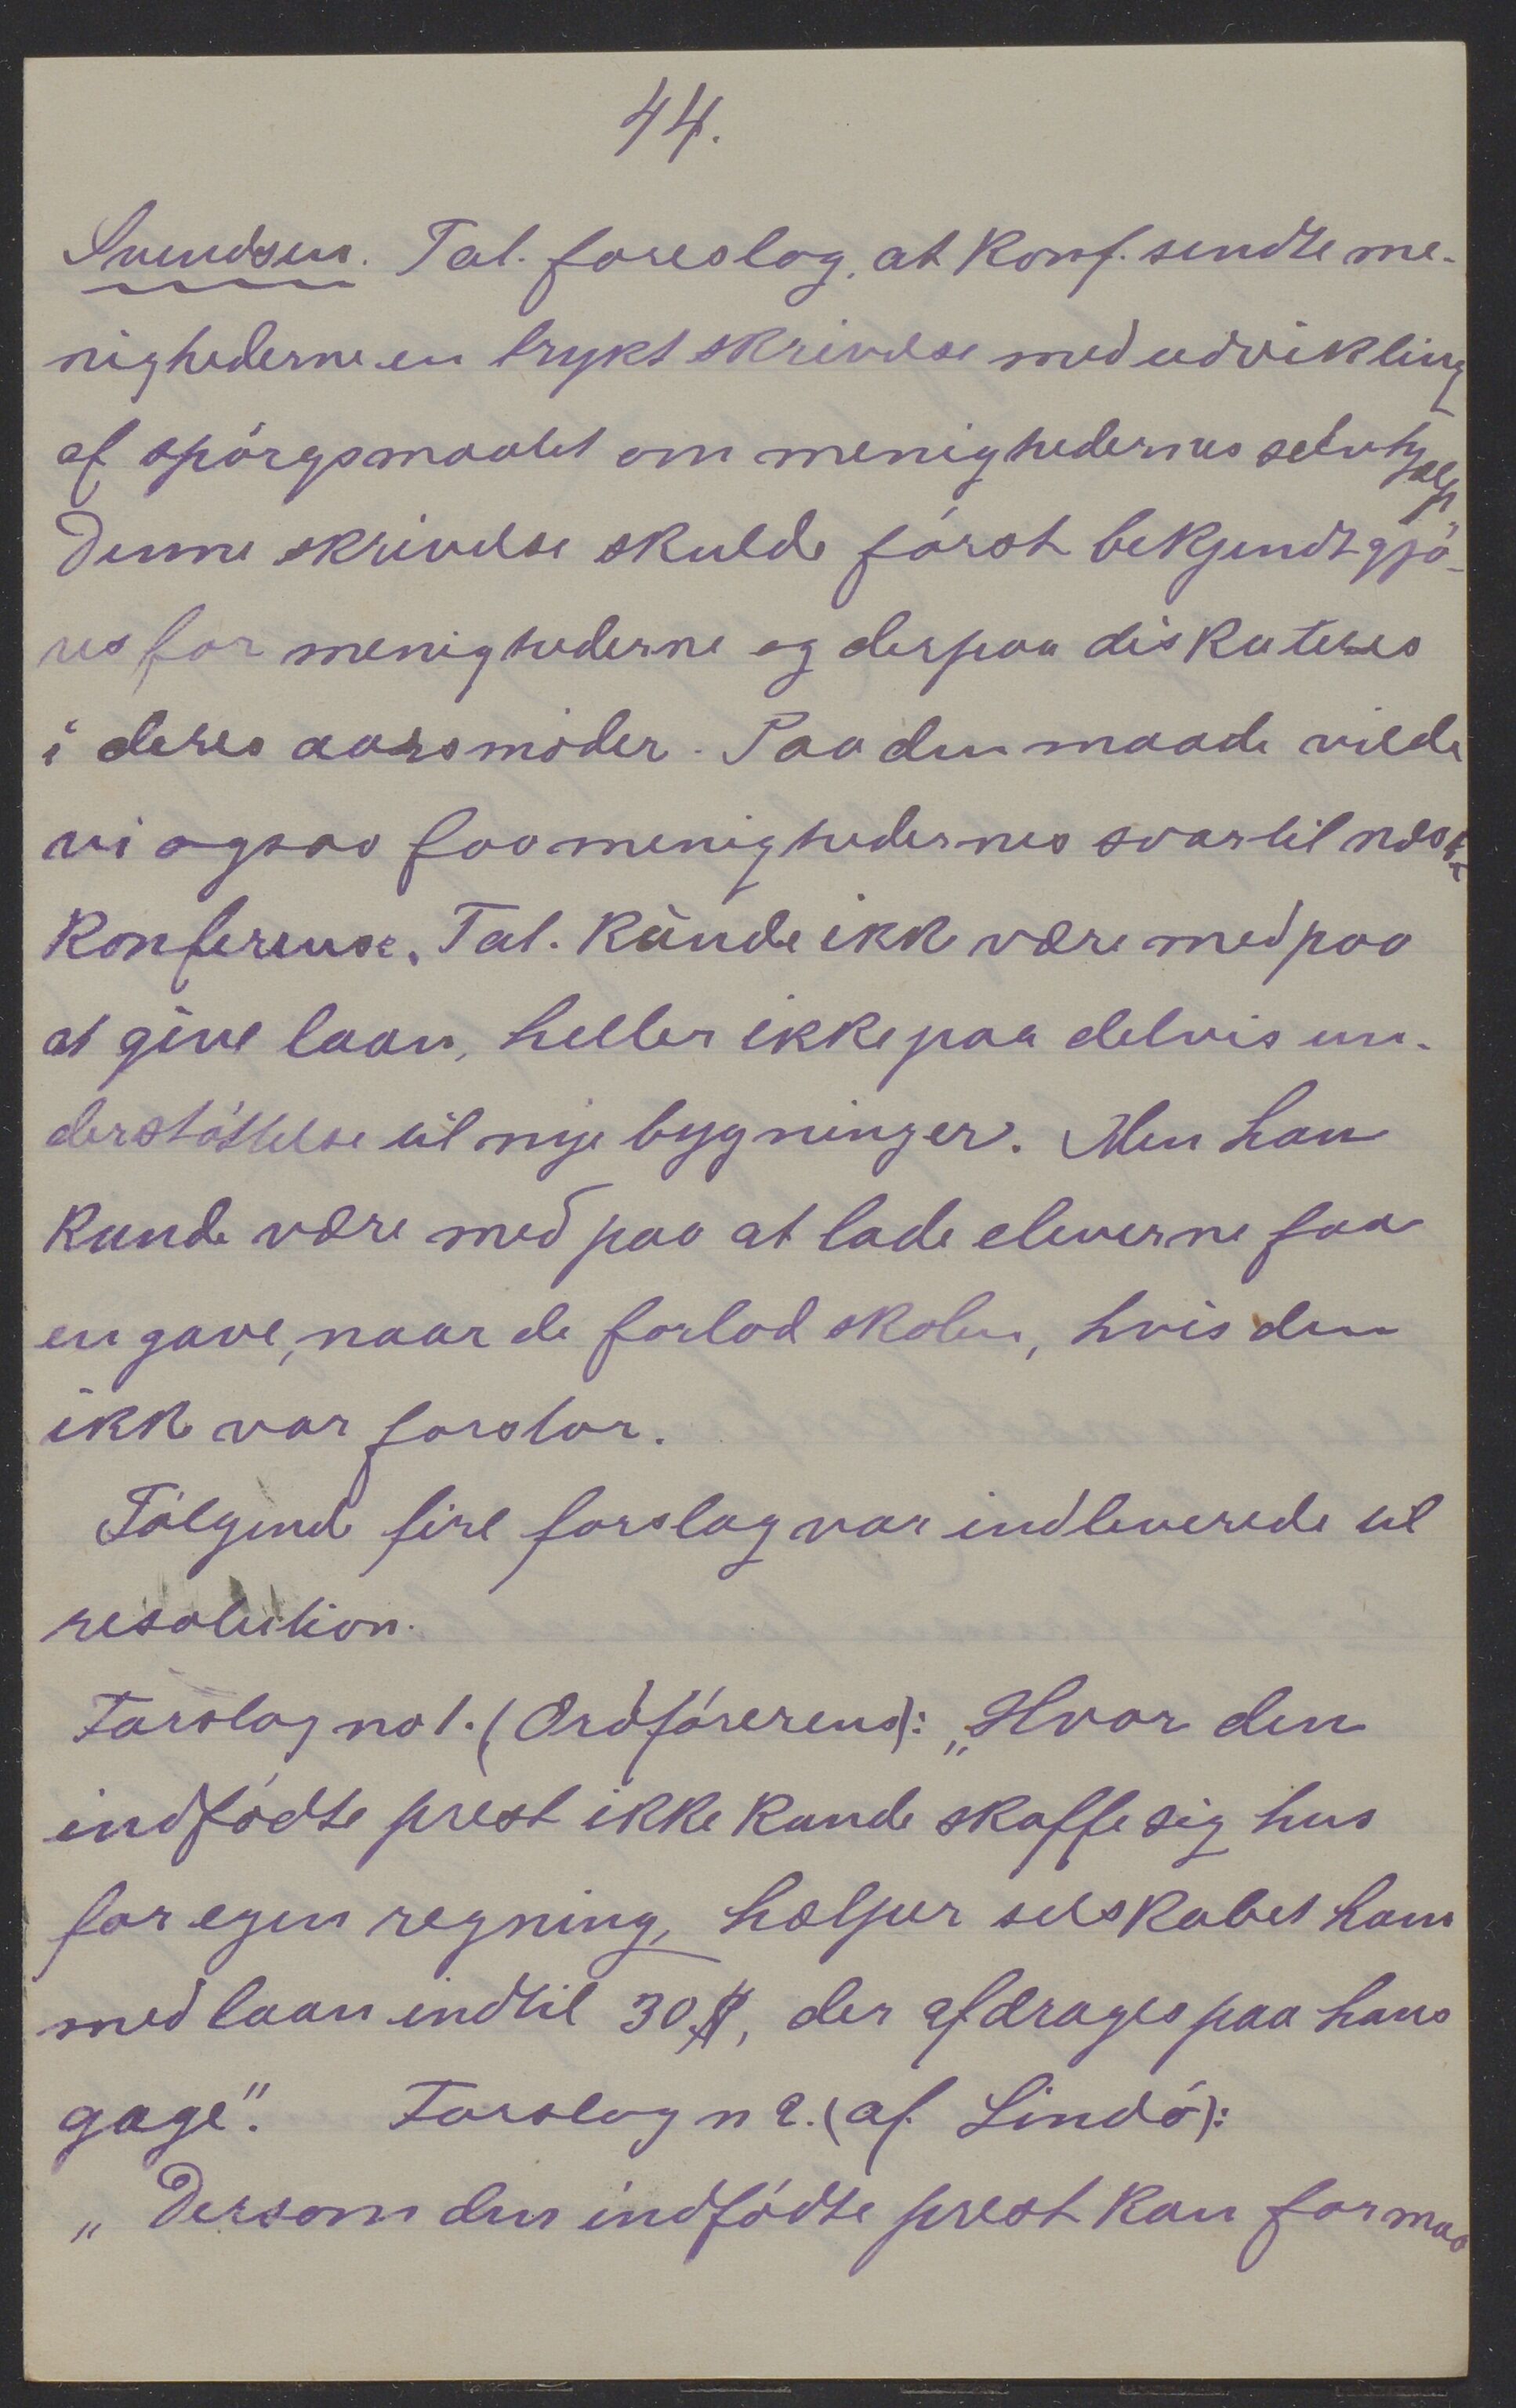 44.
Svendsen. Tal. foreslog, at Konf. sendte me-
nighederne en trykt skrivelse med udvikling
af spórgsmaalet om menighedernes selvhjælp.
Denne skrivelse skulde fórst bekjendtgjó-
res for menighederne og derpaa diskuteres
i deres aarsmóder. Paa den maade vilde
vi ogsaa faa menighedernes svar til næste
Konferense. Tal. kŭnde ikke være med paa
at give laan, heller ikke paa delvis un-
derstóttelse til nye bygninger. Men han
kunde være med paa at lade eleverne faa
en gave, naar de forlod skolen, hvis den
ikke var forstor.
Fólgende fire forslag var indleverede til
resolution.
Forslag no 1. (Ordfórerens): „Hvor den
indfódte prest ikke kunde skaffe sig hus
for egen regning, hælper selskabet ham
med laan indtil 30 $, der afdrages paa hans
gage". Forslag n 2. (af Lindó):
„Dersom den indfódte prest kan formaa